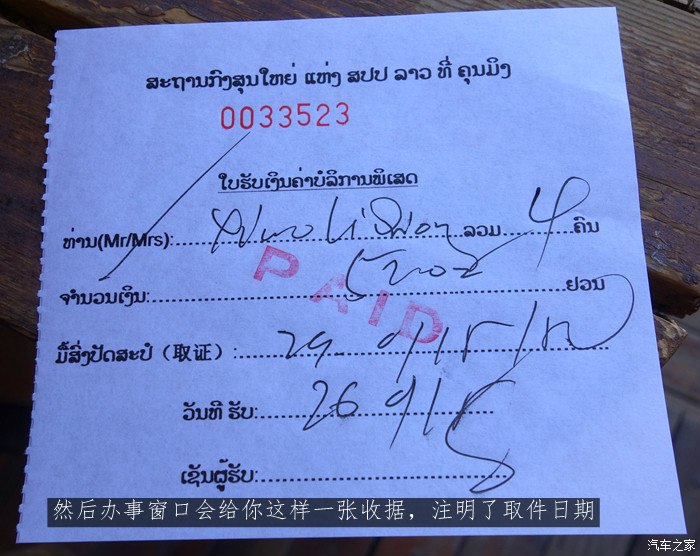 ສະຖານກົງສຸນໃຫຍ່ ແຫ່ງ ສປປ ລາວ ທີ່ ຄຸນມິງ
0033523
ໃບຮັບເງິນຄ່າບໍລິການພິເສດ
ທ່ານ(Mr/Mrs):
ລວມ 4 ຄົນ
PAID
ຈຳນວນເງິນ: ຢວນ
ມື້ສົ່ງປັດສະປໍ (取证) : 29
ວັນທີ ຮັບ: 26
ເຊັນຜູ້ຮັບ:
然后办事窗口会给你这样一张收据，注明了取件日期
汽车之家